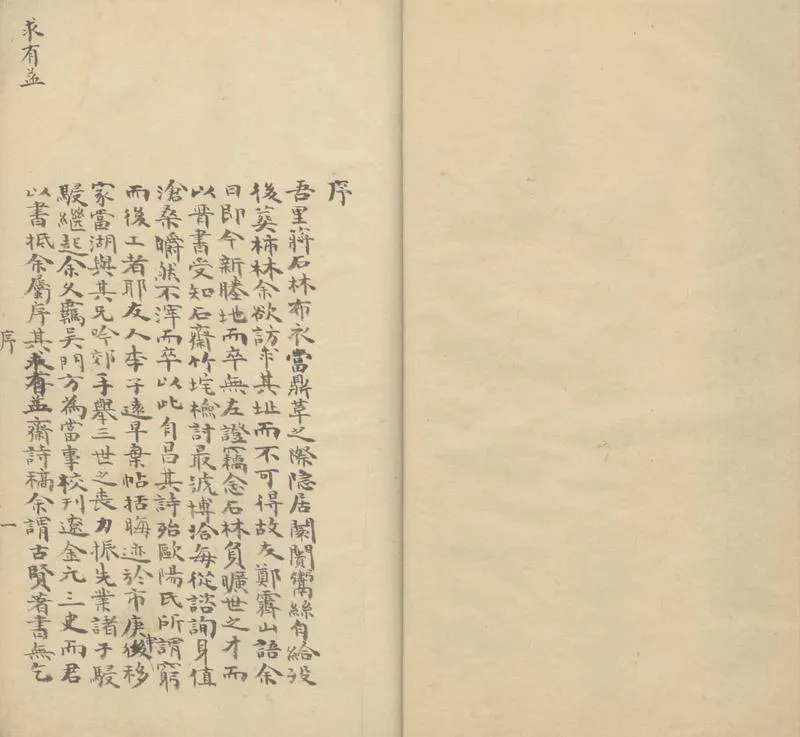 序
吾里蔣石林布衣當鼎革之際隱居闤闠鬻絲自給歿
後葬柿林余欲訪求其址而不可得故友鄭霽山語余
曰即今新塍地而卒無左證竊念石林負曠世之才而
以晉書受知石齋竹垞檢討最淹博洽每從諮詢身值
滄桑皭然不滓而卒以此自昌其詩殆歐陽氏所謂窮
而後工者耶友人李子遠早棄帖括晦迹於市庚申後移
家當湖與其兄吟郊手舉三世之喪力振先業諸子駸
駸繼起余久羈吳門方為當事校刊遼金元三史而君
以書抵余屬序其求有益齋詩稿余謂古賢著書無乞
求有益
序
一